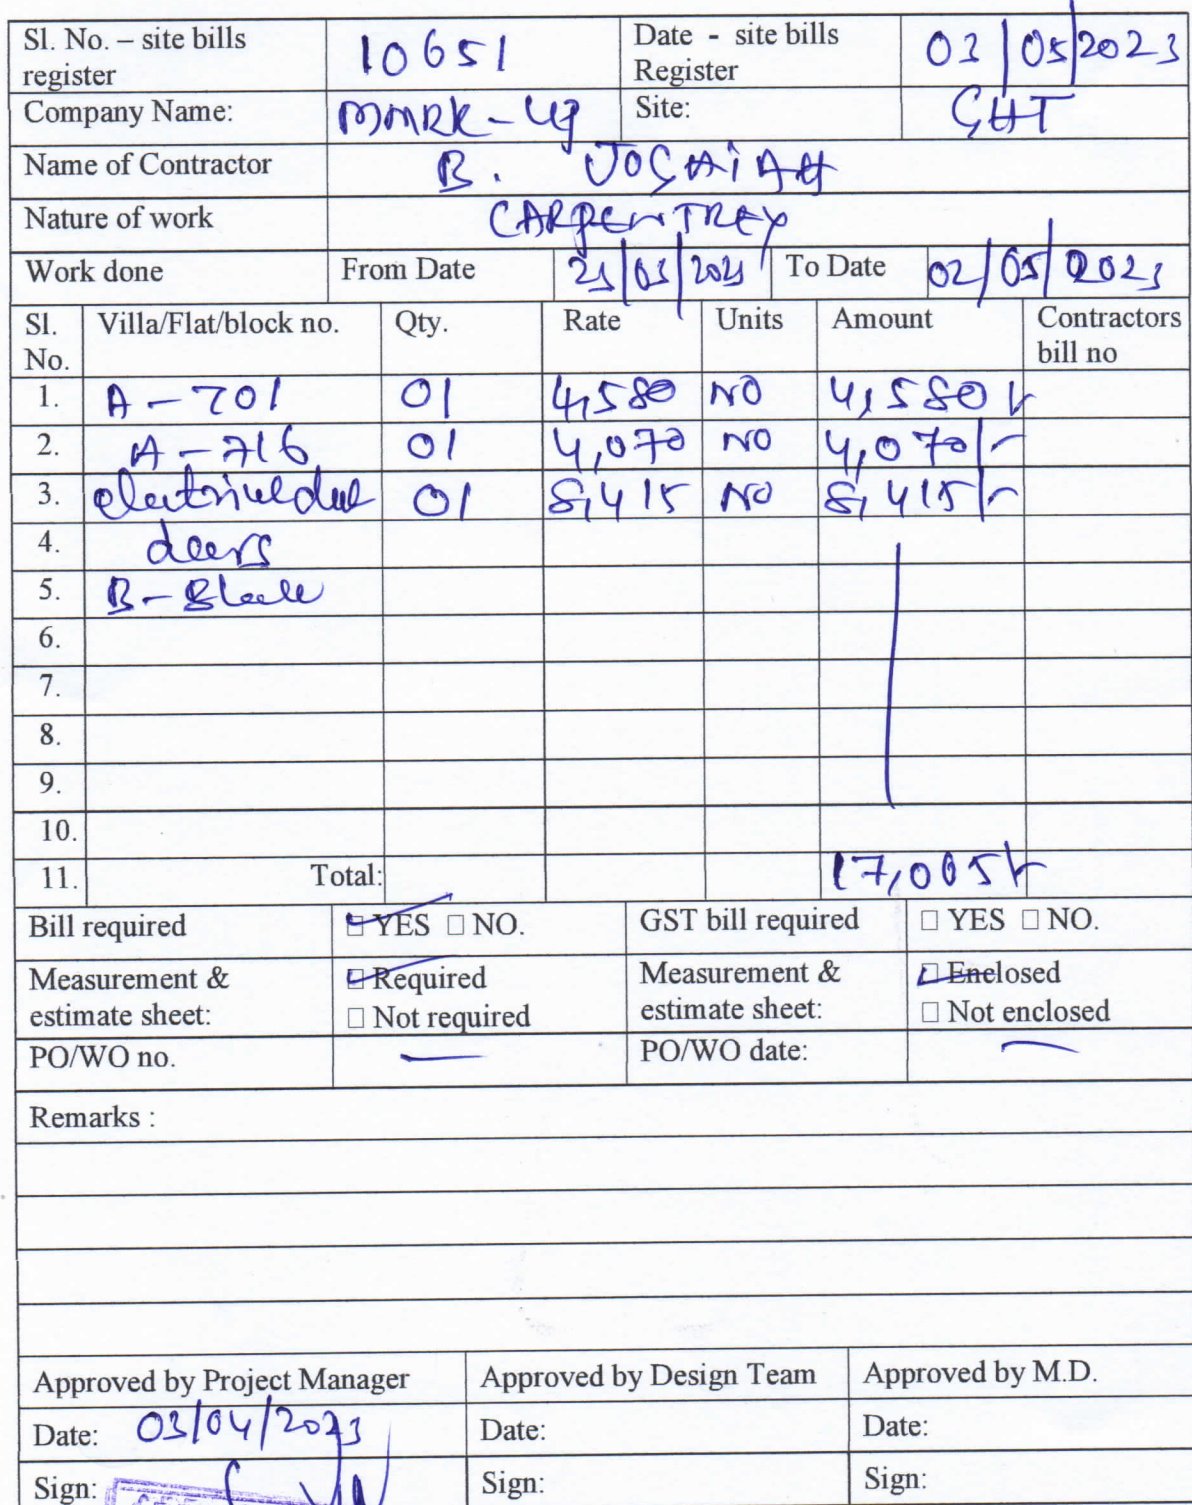 Sl. No. – site bills register 10651 Date - site bills Register 03/05/2023
Company Name: MMRK-LLP Site: GHT
Name of Contractor B. JOSHAIAH
Nature of work CARPENTREY
Work done From Date 23/03/2023 To Date 02/05/2023
Sl. No. Villa/Flat/block no. Qty. Rate Units Amount Contractors bill no
1. A-701 01 4,580 NO 4,580/-
2. A-716 01 4,070 NO 4,070/-
3. electrical duct 01 8,415 NO 8,415/-
4. doors
5. B-Block
6.
7.
8.
9.
10.
11. Total: 17,065/-
Bill required ☐ YES ☐ NO. GST bill required ☐ YES ☐ NO.
Measurement & estimate sheet: ☐ Required ☐ Not required Measurement & estimate sheet: ☐ Enclosed ☐ Not enclosed
PO/WO no. — PO/WO date: —
Remarks :
Approved by Project Manager Approved by Design Team Approved by M.D.
Date: 03/04/2023 Date: Date:
Sign: Sign: Sign: